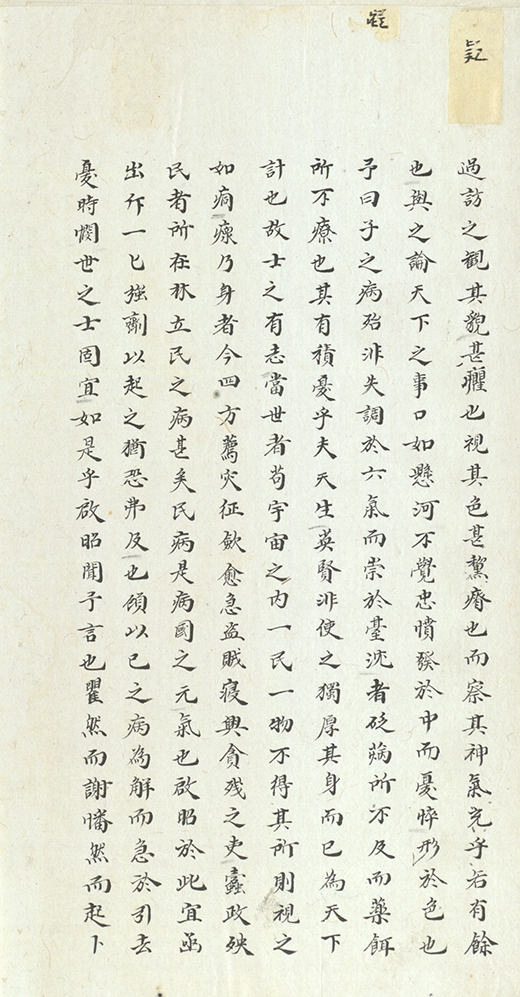 疑
疑
過訪之觀其貌甚癯也視其色甚黧瘠也而察其神氣充乎若有餘
也與之論天下之事口如懸河不覺忠憤發於中而憂悴形於色也
予曰子之病殆非失調於六氣而祟於臺沈者砭焫所不及而藥餌
所不療也其有積憂乎夫天生英賢非使之獨厚其身而已為天下
計也故士之有志當世者苟宇宙之内一民一物不得其所則視之
如痌瘝乃身者今四方薦灾征歛愈急盗賊寢興貪殘之吏蠹政殃
民者所在林立民之病甚矣民病是病國之元氣也啟昭於此宜亟
出斤一匕強劑以起之猶恐弗及也顧以已之病為解而急於引去
憂時憫世之士固宜如是乎啟昭聞予言也瞿然而謝憣然而起卜